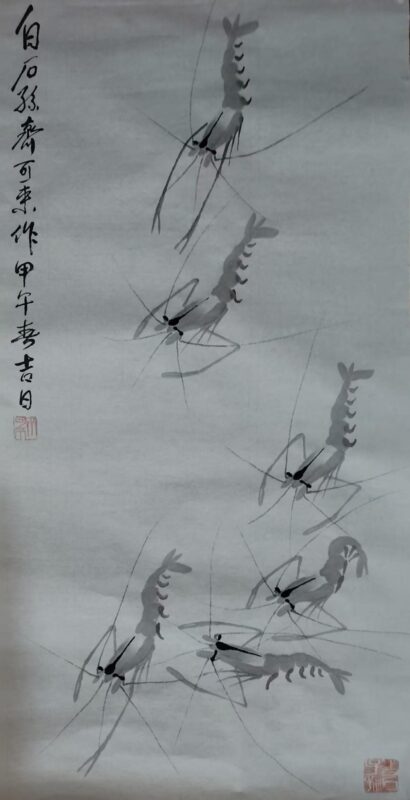 白石孙齊可来作甲午春吉日